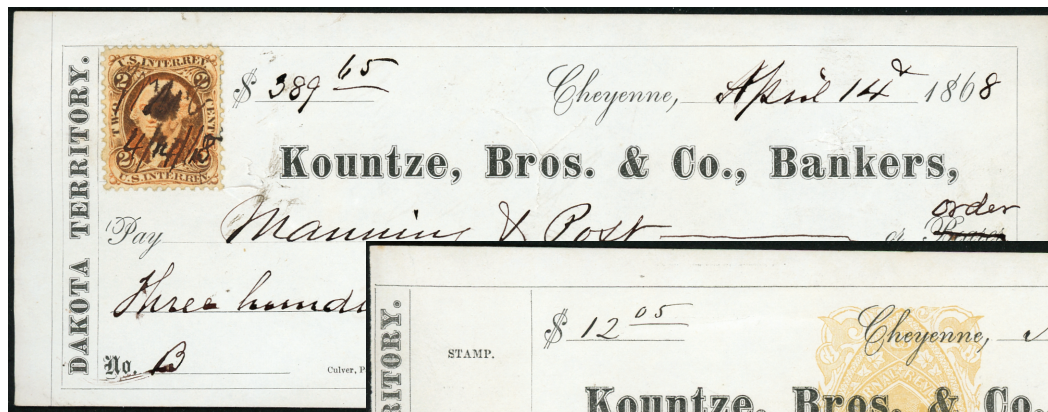 DAKOTA TERRITORY.
U.S. INTER. REV.
2 2
TWO CENTS
2 2
U.S. INTER. REV.
$ 389 65
Cheyenne, April 14 1868
Kountze, Bros. & Co., Bankers,
Pay Manning & Post or order
Three
No. B
Culver, P
STAMP.
$ 12 05
Cheyenne,
Kountze, Bros. & Co.